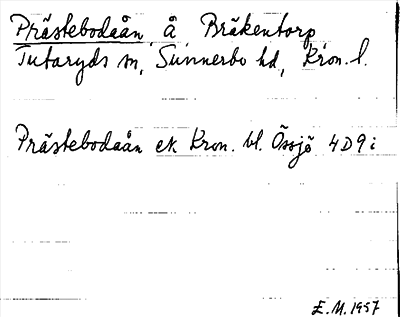 Prästebodaån, å, Bräkentorp
Tutaryds sn, Sunnerbo hd, Kron. l.
Prästebodaån ek Kron. bl. Össjö 4D9i
E.M. 1957